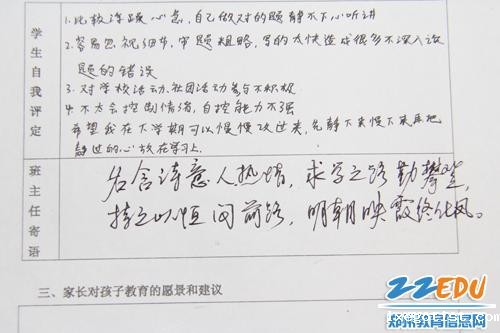 学生自我评定
1.比较浮躁心急，自己做对的题静不下心听讲
2.容易忽视细节，审题粗略，写的太快造成很多不深入该
题的错误
3.对学校活动、社团活动参与不积极
4.不太会控制情绪，自控能力不强
希望我在下学期可以慢慢改过来，先静下来慢下来再把
静过的心放在学习上.
班主任寄语
名含诗意人热情，求学之路勤攀登，
持之以恒问前路，明朝映霞终化风。
三、家长对孩子教育的愿景和建议
ZZEDU
郑州教育信息网